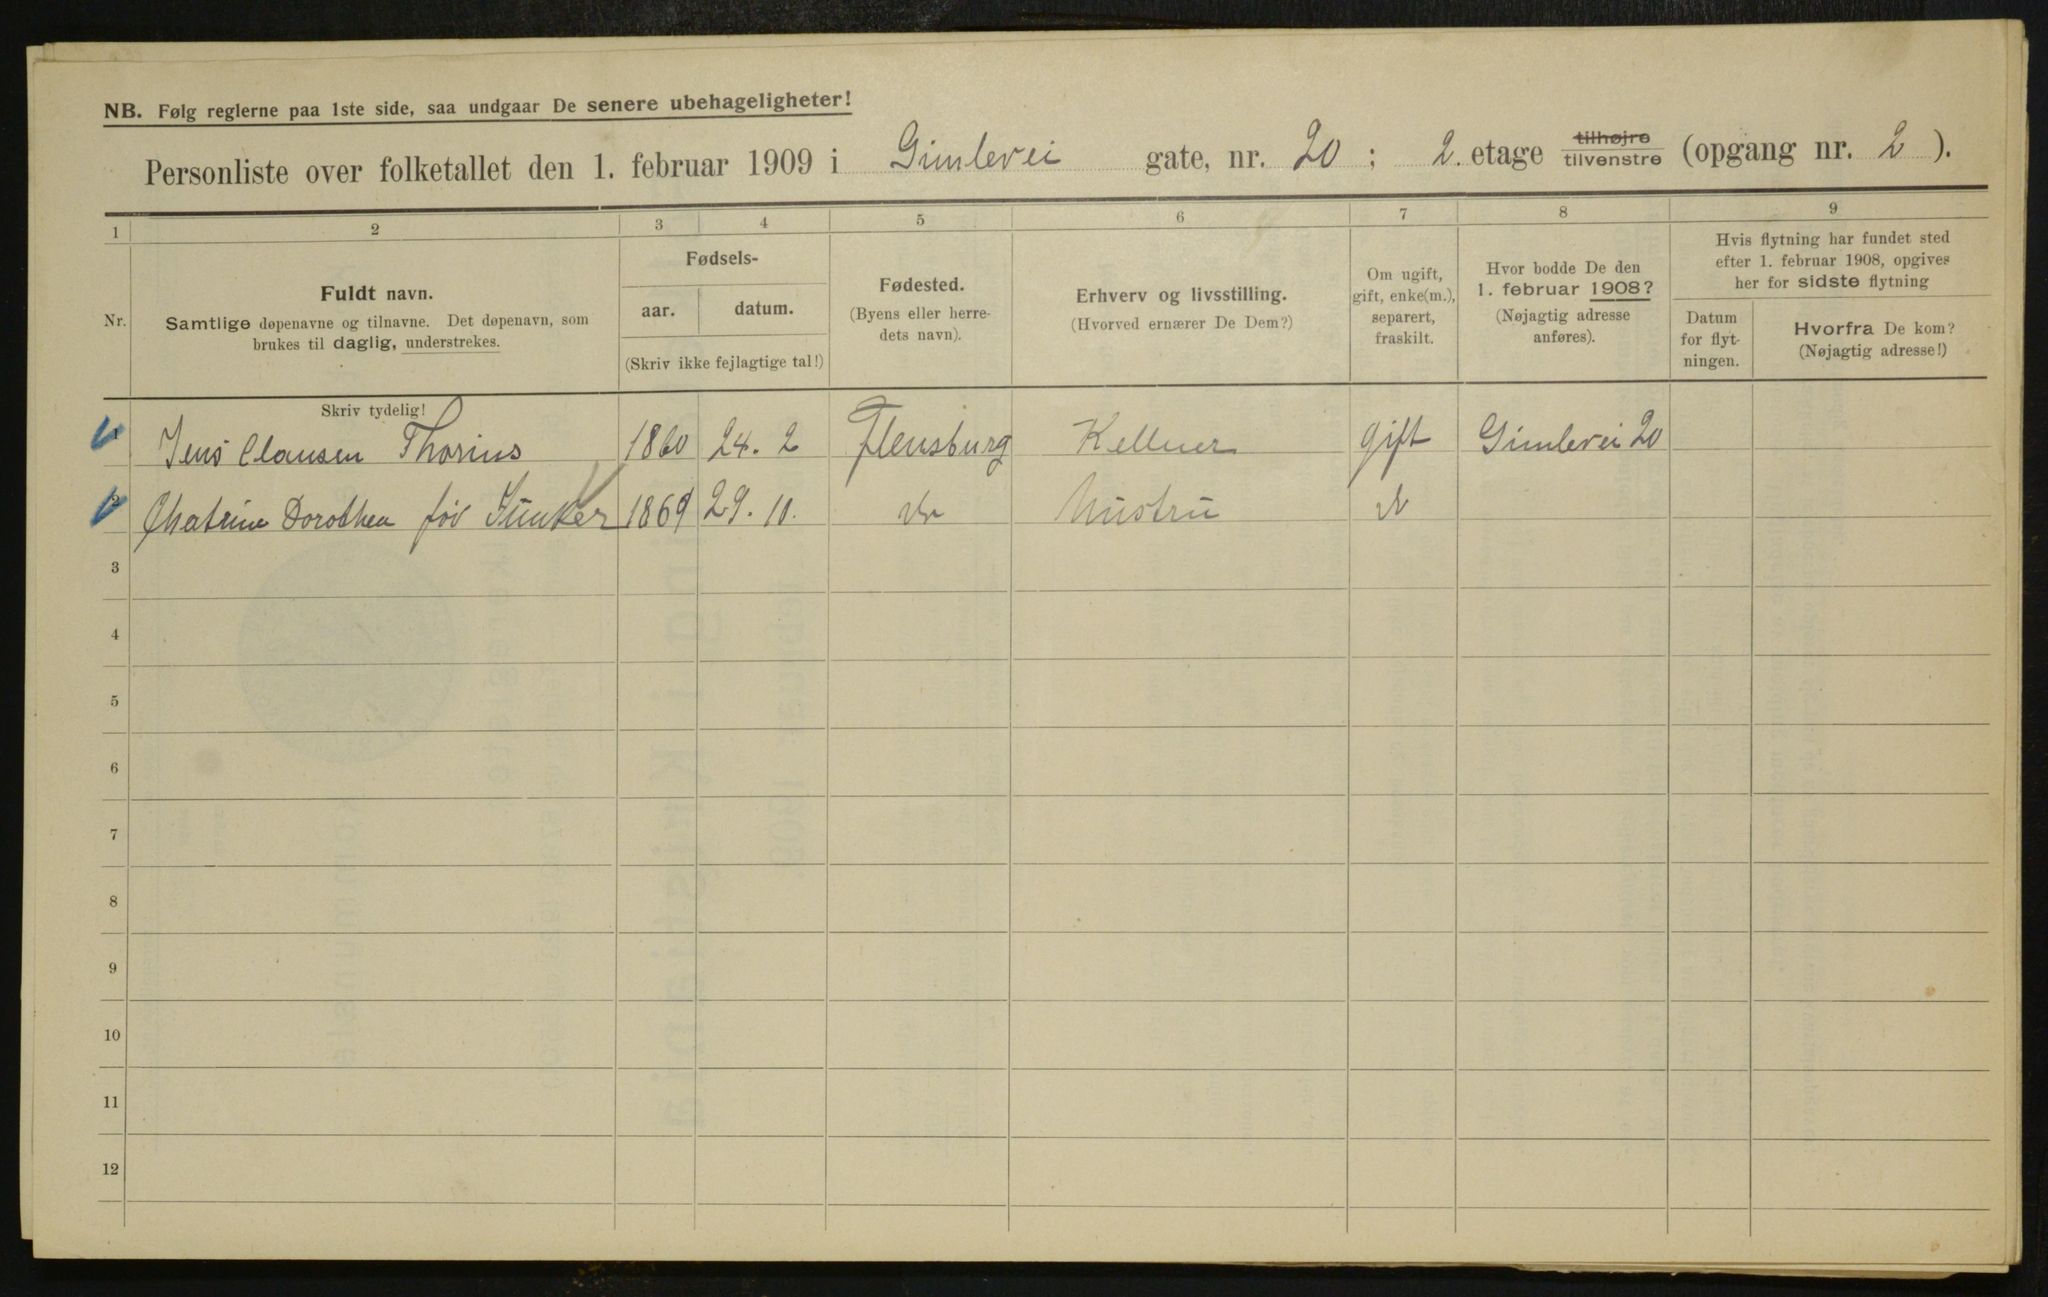 NB. Følg reglerne paa 1ste side, saa undgaar De senere ubehageligheter!
Personliste over folketallet den 1. februar 1909 i Gimlevei gate, nr. 20 ; 2. etage tilhøjre tilvenstre (opgang nr. 2 ).
1 2 3 4 5 6 7 8 9
Nr.
Fuldt navn.
Samtlige døpenavne og tilnavne. Det døpenavn, som
brukes til daglig, understrekes.
Fødsels-
aar. datum.
(Skriv ikke fejlagtige tal!)
Fødested.
(Byens eller herre-
dets navn).
Erhverv og livsstilling.
(Hvorved ernærer De Dem?)
Om ugift,
gift, enke(m.),
separert,
fraskilt.
Hvor bodde De den
1. februar 1908?
(Nøjagtig adresse
anføres).
Hvis flytning har fundet sted
efter 1. februar 1908, opgives
her for sidste flytning
Datum
for flyt-
ningen.
Hvorfra De kom?
(Nøjagtig adresse!)
Skriv tydelig!
1 Jens Clausen Thorius 1860 24. 2 Flensburg Kellner gift Gimlevei 20
2 Chatrine Dorothea för Junker 1869 29. 10. do Hustru do
3
4
5
6
7
8
9
10
11
12